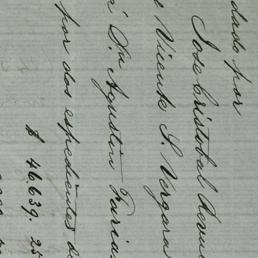 dado por
José Cristobal
Vicente S. Vergara
Dn Agustin Farias
por dos espedientes de
$ 46.639 25